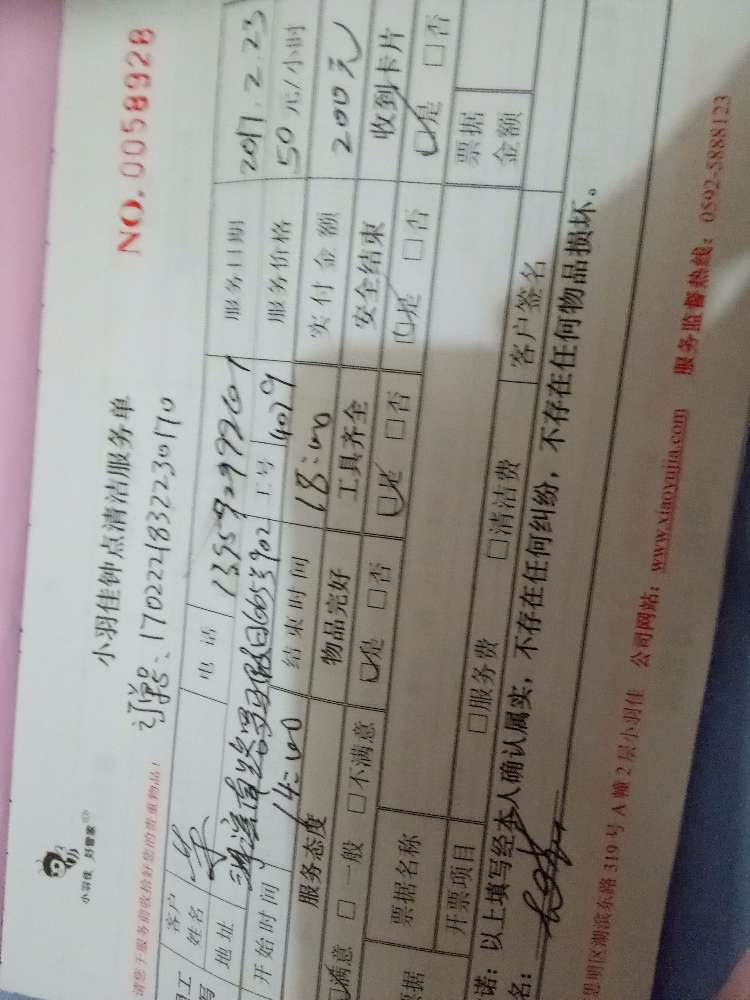 小羽佳 好管家
小羽佳钟点清洁服务单
NO.0058928
1702221832230170
请您于服务前收拾好您的贵重物品！
客户姓名 电话 13959299261 服务日期 2017.2.23
地址 工号 4029 服务价格 50元/小时
开始时间 14:00 结束时间 18:00 实付金额 200元
服务态度 物品完好 工具齐全 安全结束 收到卡片
满意 □一般 □不满意 □是 □否 □是 □否 □是 □否 □是 □否
票据名称
开票项目 □服务费 □清洁费 票据金额
诺：以上填写经本人确认属实，不存在任何纠纷，不存在任何物品损坏。
名： 客户签名
思明区湖滨东路 319 号 A 幢 2 层小羽佳 公司网站：www.xiaoyujia.com 服务监督热线：0592-5888123